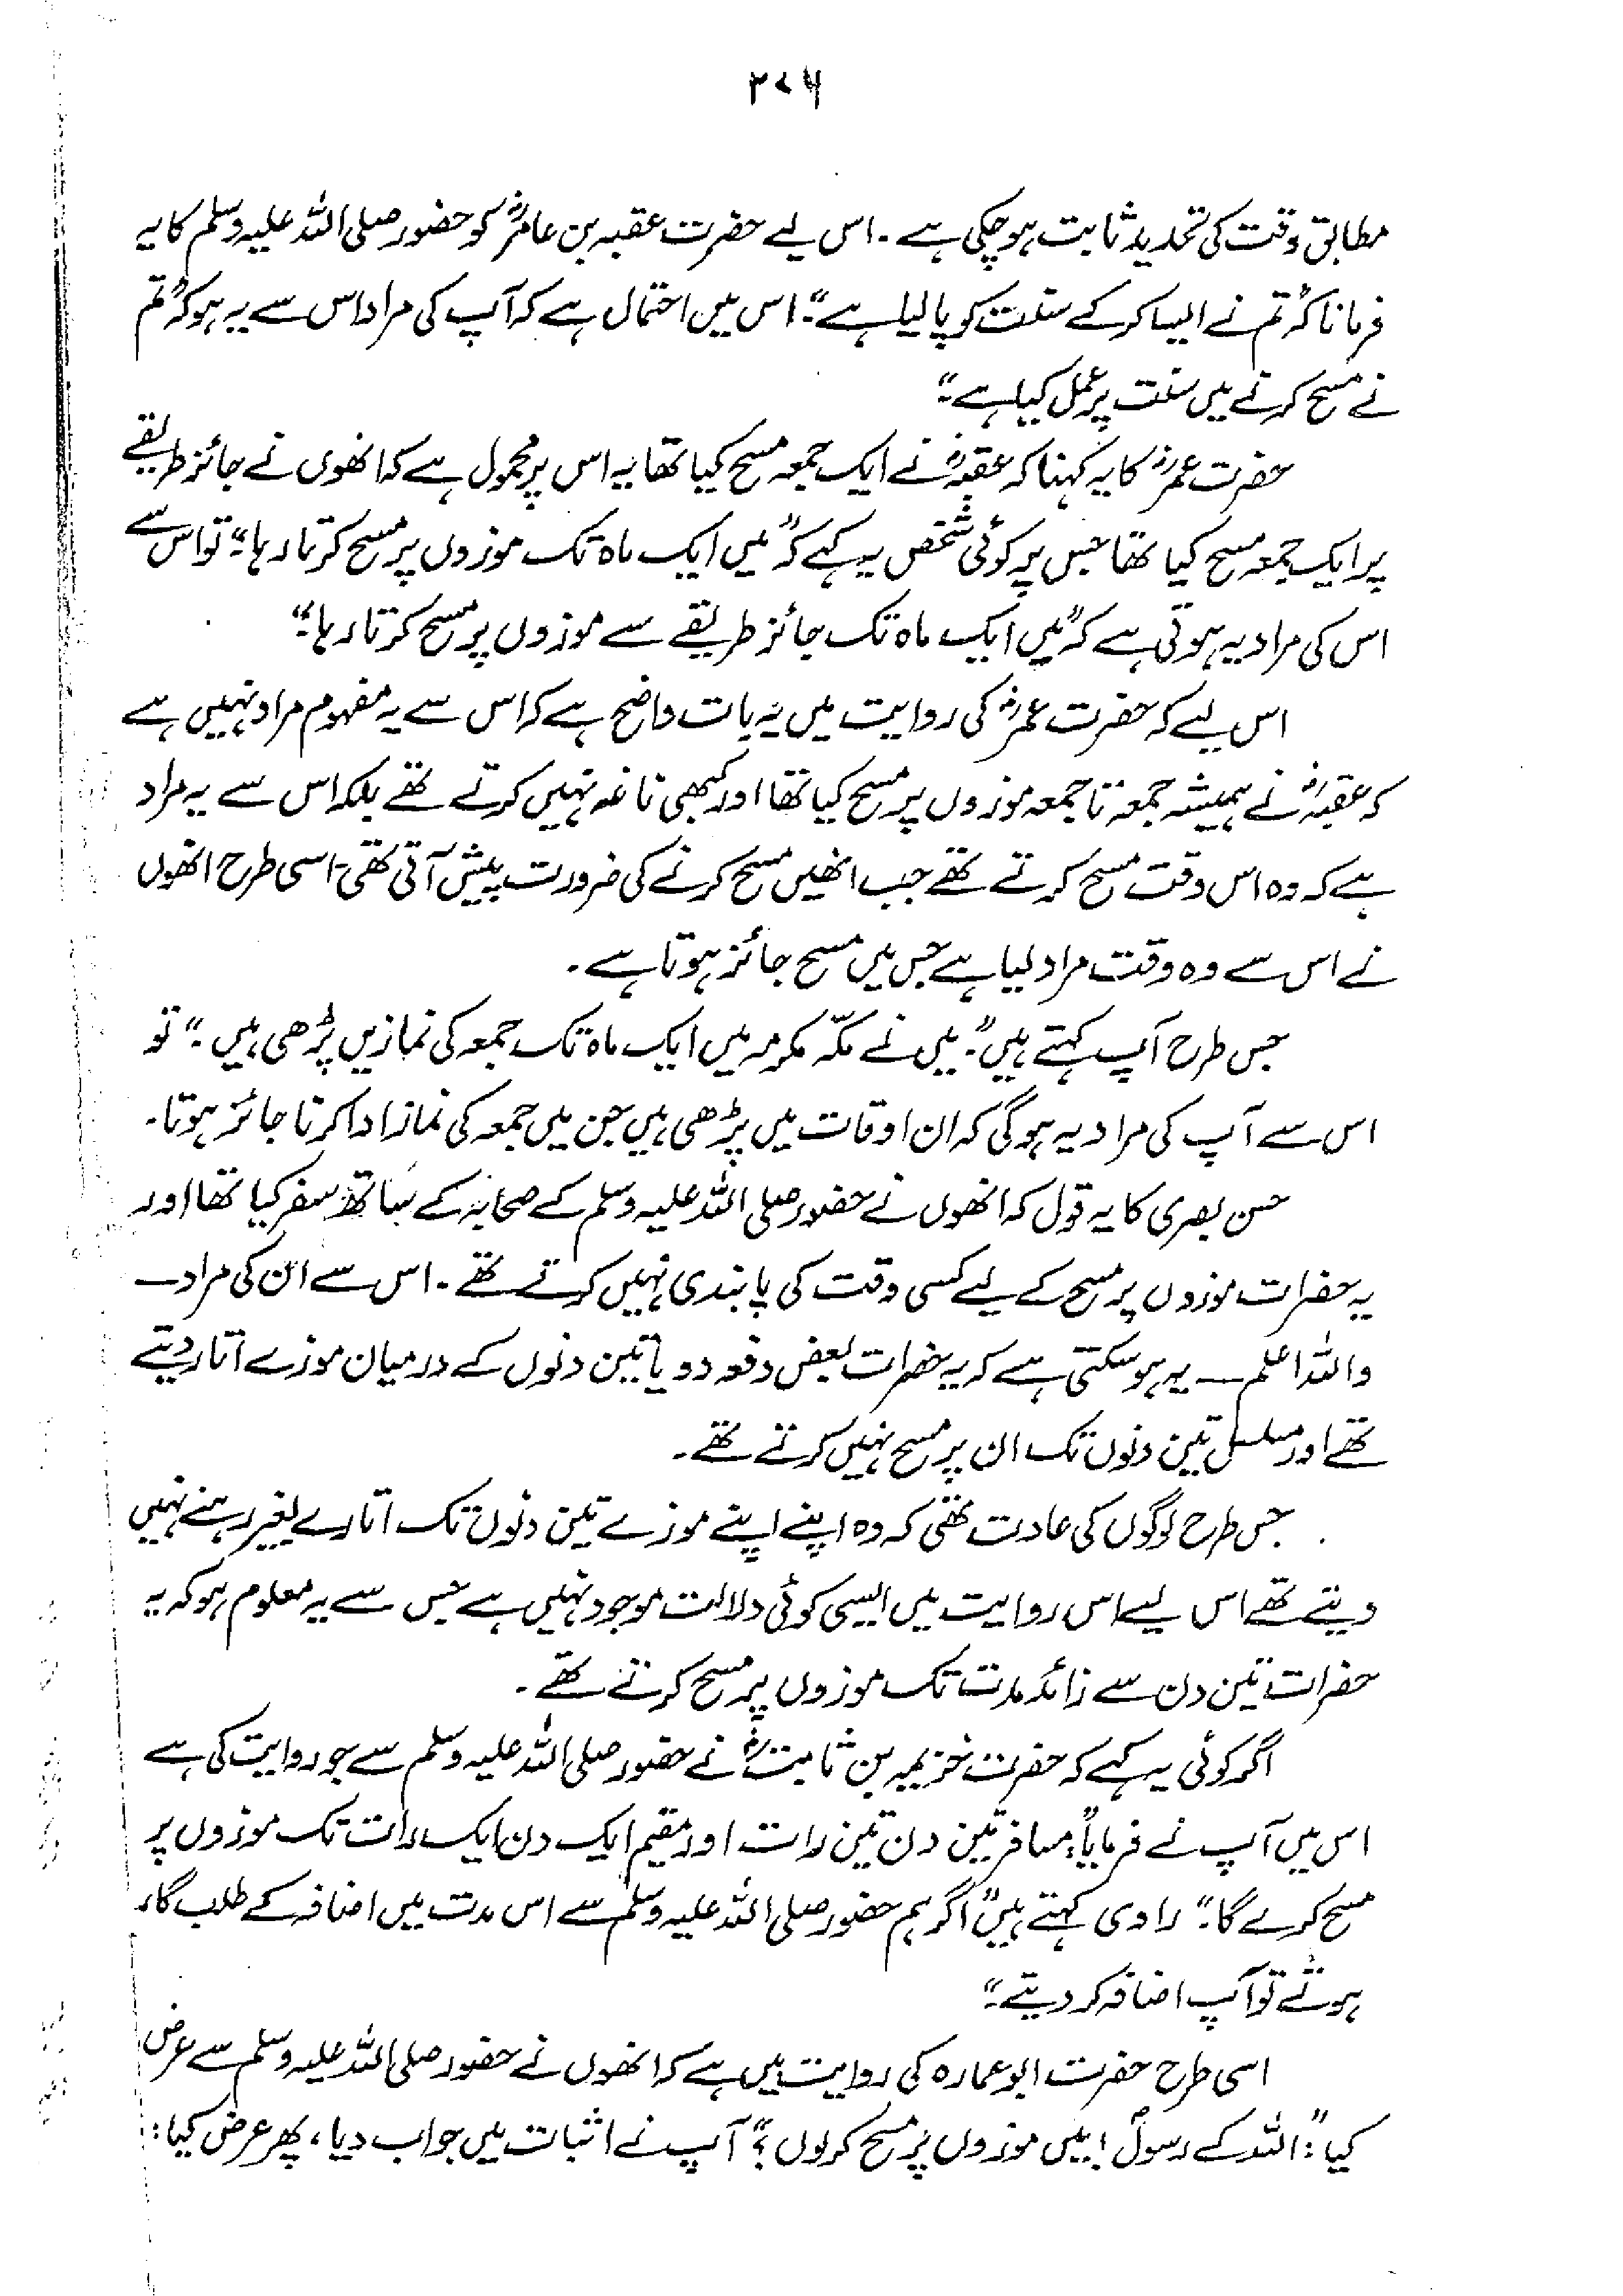 ۳۷۶
مطابق وقت کی تحدید ثابت ہو چکی ہے۔ اس لیے حضرت عقبہ بن عامرؓ کو حضور صلی اللہ علیہ وسلم کا یہ
فرمانا کہ "تم نے ایسا کر کے سنت کو پا لیا ہے"۔ اس میں احتمال ہے کہ آپ کی مراد اس سے یہ ہو کہ "تم
نے مسح کرنے میں سنت پر عمل کیا ہے"۔
حضرت عمرؓ کا یہ کہنا کہ عقبہؓ نے ایک جمعہ مسح کیا تھا یہ اس پر محمول ہے کہ انھوں نے جائز طریقے
پر ایک جمعہ مسح کیا تھا جس پر کوئی شخص یہ کہے کہ "میں ایک ماہ تک موزوں پر مسح کرتا رہا"۔ تو اس سے
اس کی مراد یہ ہوتی ہے کہ "میں ایک ماہ تک جائز طریقے سے موزوں پر مسح کرتا رہا"۔
اس لیے کہ حضرت عمرؓ کی روایت میں یہ بات واضح ہے کہ اس سے یہ مفہوم مراد نہیں ہے
کہ عقبہؓ نے ہمیشہ جمعہ تا جمعہ موزوں پر مسح کیا تھا اور کبھی ناغہ نہیں کرتے تھے بلکہ اس سے یہ مراد
ہے کہ وہ اس وقت مسح کرتے تھے جب انھیں مسح کرنے کی ضرورت پیش آتی تھی۔ اسی طرح انھوں
نے اس سے وہ وقت مراد لیا ہے جس میں مسح جائز ہوتا ہے۔
جس طرح آپ کہتے ہیں"۔ میں نے مکّہ مکرمہ میں ایک ماہ تک جمعہ کی نمازیں پڑھی ہیں۔" تو
اس سے آپ کی مراد یہ ہو گی کہ ان اوقات میں پڑھی ہیں جن میں جمعہ کی نماز ادا کرنا جائز ہوتا۔
حسن بصری کا یہ قول کہ انھوں نے حضور صلی اللہ علیہ وسلم کے صحابہؓ کے ساتھ سفر کیا تھا اور
یہ حضرات موزوں پر مسح کے لیے کسی وقت کی پابندی نہیں کرتے تھے۔ اس سے ان کی مراد —
واللہ اعلم — یہ ہو سکتی ہے کہ یہ حضرات بعض دفعہ دو یا تین دنوں کے درمیان موزے اتار دیتے
تھے اور مسلسل تین دنوں تک ان پر مسح نہیں کرتے تھے۔
جس طرح لوگوں کی عادت تھی کہ وہ اپنے اپنے موزے تین دنوں تک اتارے بغیر رہنے نہیں
دیتے تھے اس لیے اس روایت میں ایسی کوئی دلالت موجود نہیں ہے جس سے یہ معلوم ہو کہ یہ
حضرات تین دن سے زائد مدت تک موزوں پر مسح کرتے تھے۔
اگر کوئی یہ کہے کہ حضرت خزیمہ بن ثابتؓ نے حضور صلی اللہ علیہ وسلم سے جو روایت کی ہے
اس میں آپ نے فرمایا "مسافر تین دن تین رات اور مقیم ایک دن ایک رات تک موزوں پر
مسح کرے گا"۔ راوی کہتے ہیں "اگر ہم حضور صلی اللہ علیہ وسلم سے اس مدت میں اضافہ کے طلب گار
ہوتے تو آپ اضافہ کر دیتے"۔
اسی طرح حضرت ابوعمارہ کی روایت میں ہے کہ انھوں نے حضور صلی اللہ علیہ وسلم سے عرض
کیا: "اللہ کے رسولؐ! میں موزوں پر مسح کر لوں؟" آپ نے اثبات میں جواب دیا، پھر عرض کیا: